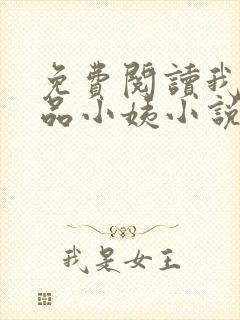 免費閱讀我
品小姨小說
我是女王